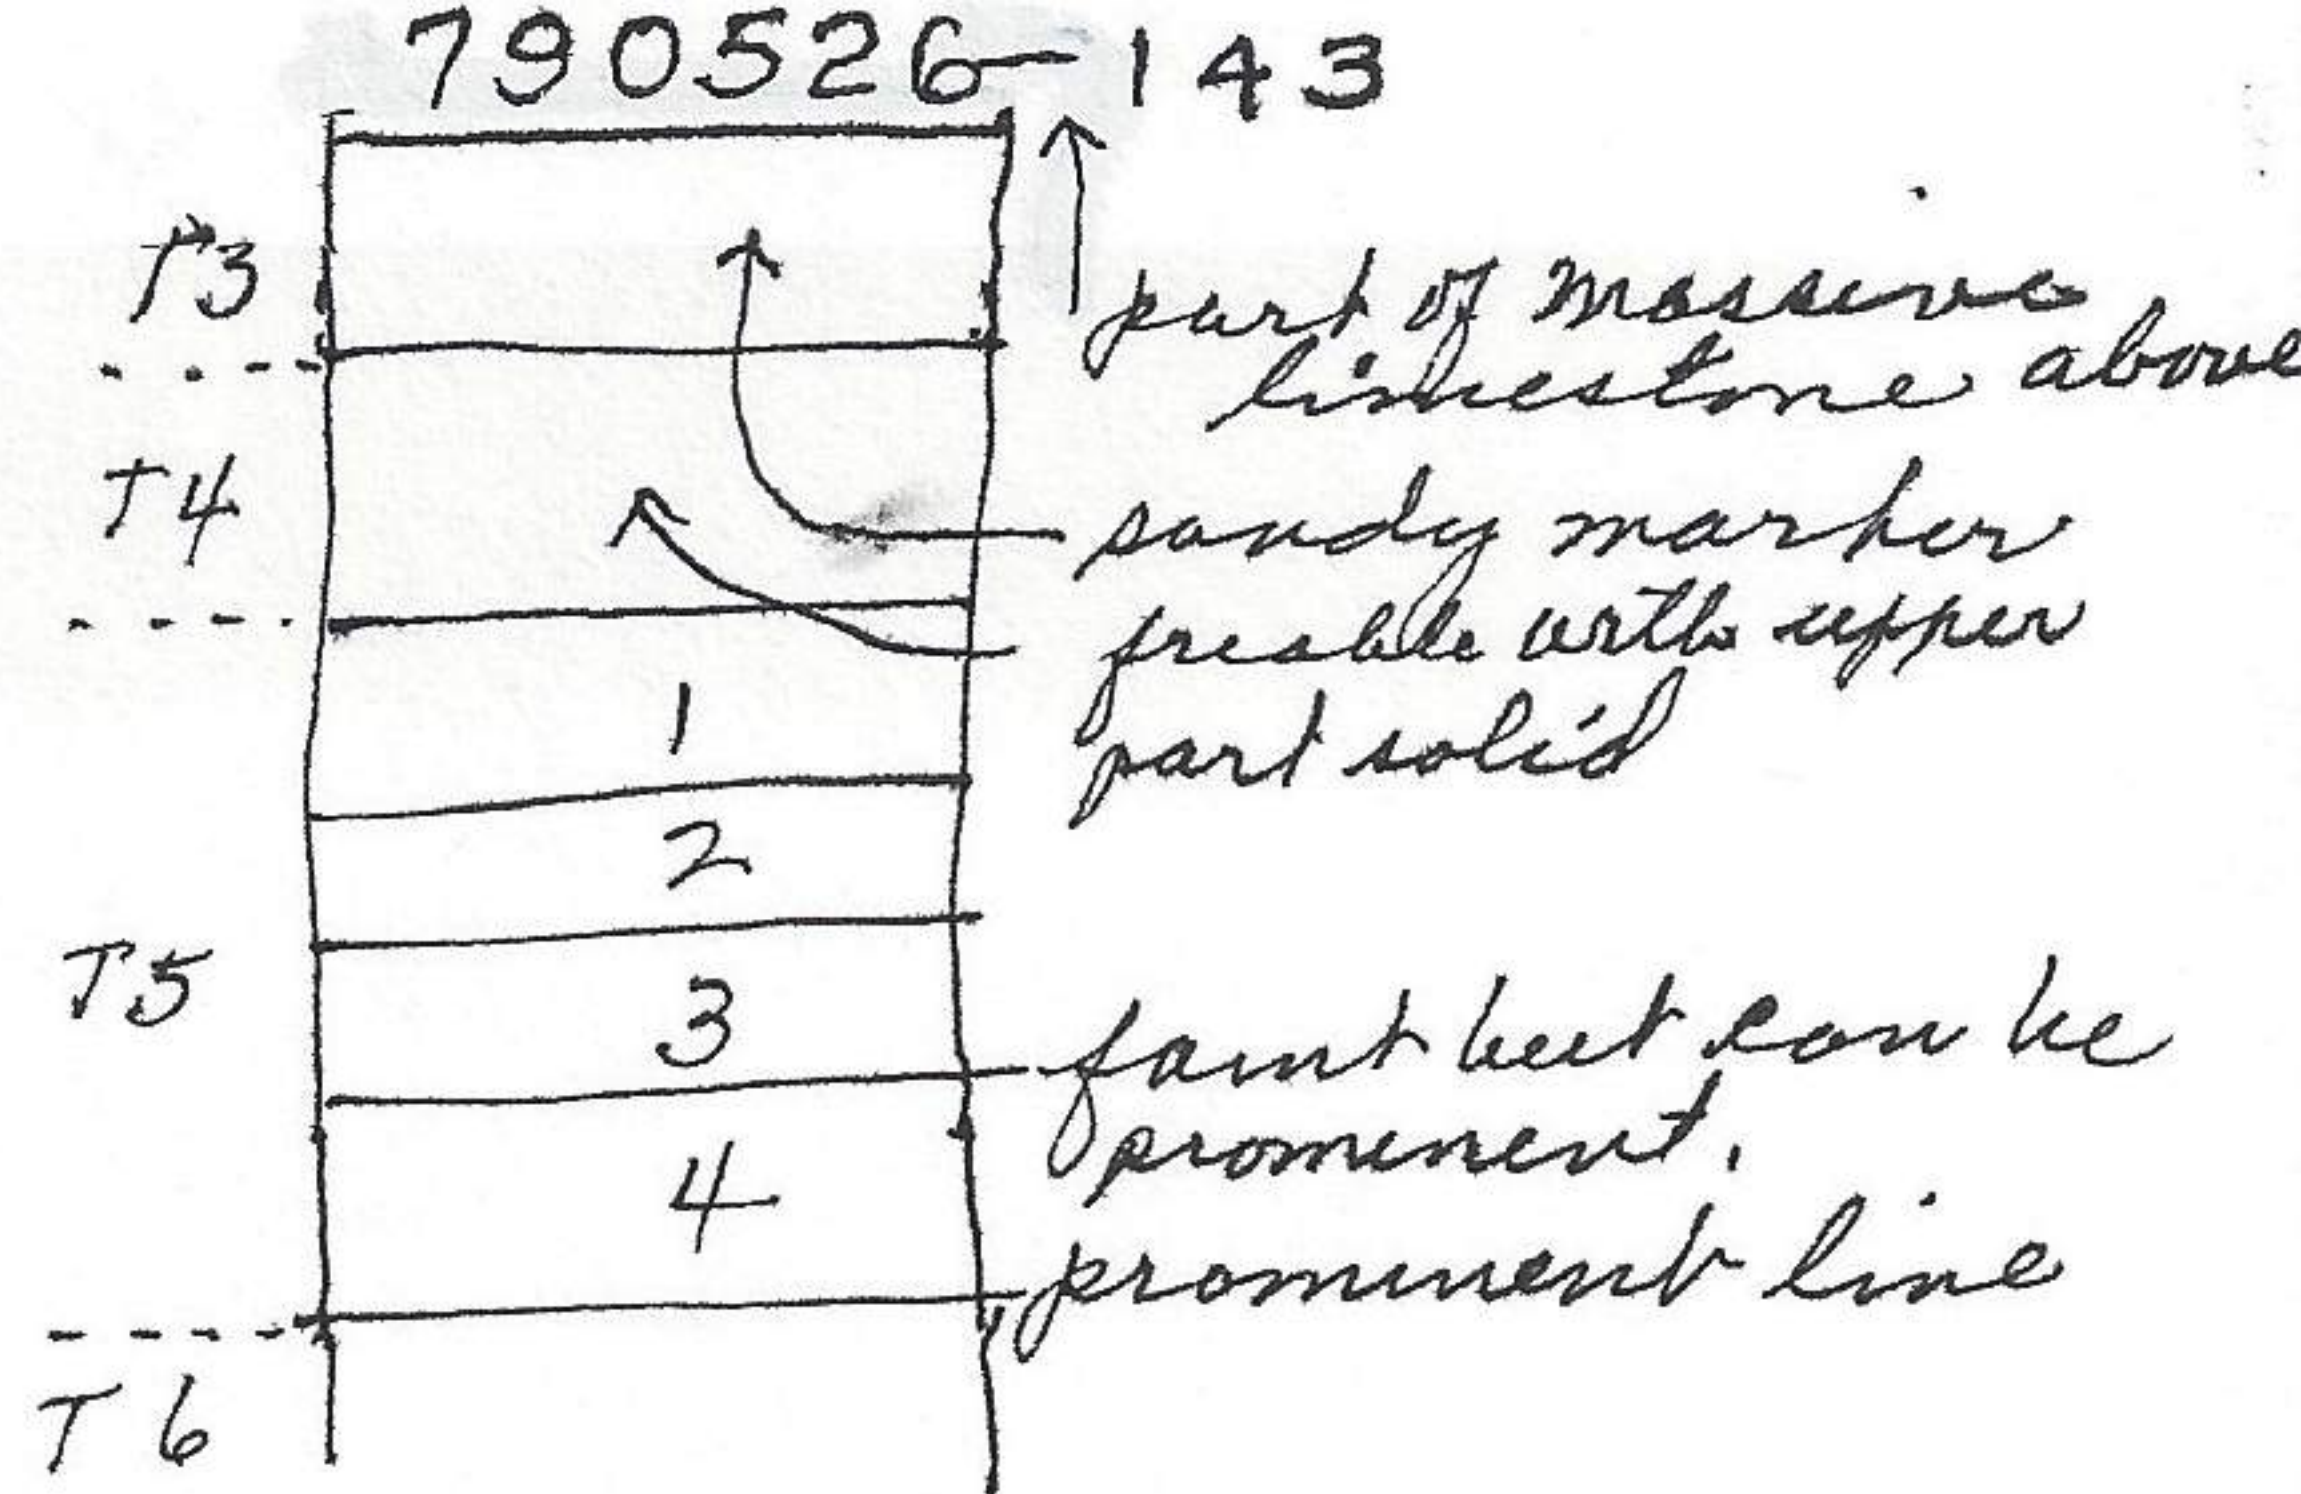 790526-143
T3
part of massive
limestone above
T4
sandy marker
freable with upper
part solid
1
2
T5
3
faint but can be
prominent.
4
prominent line
T6